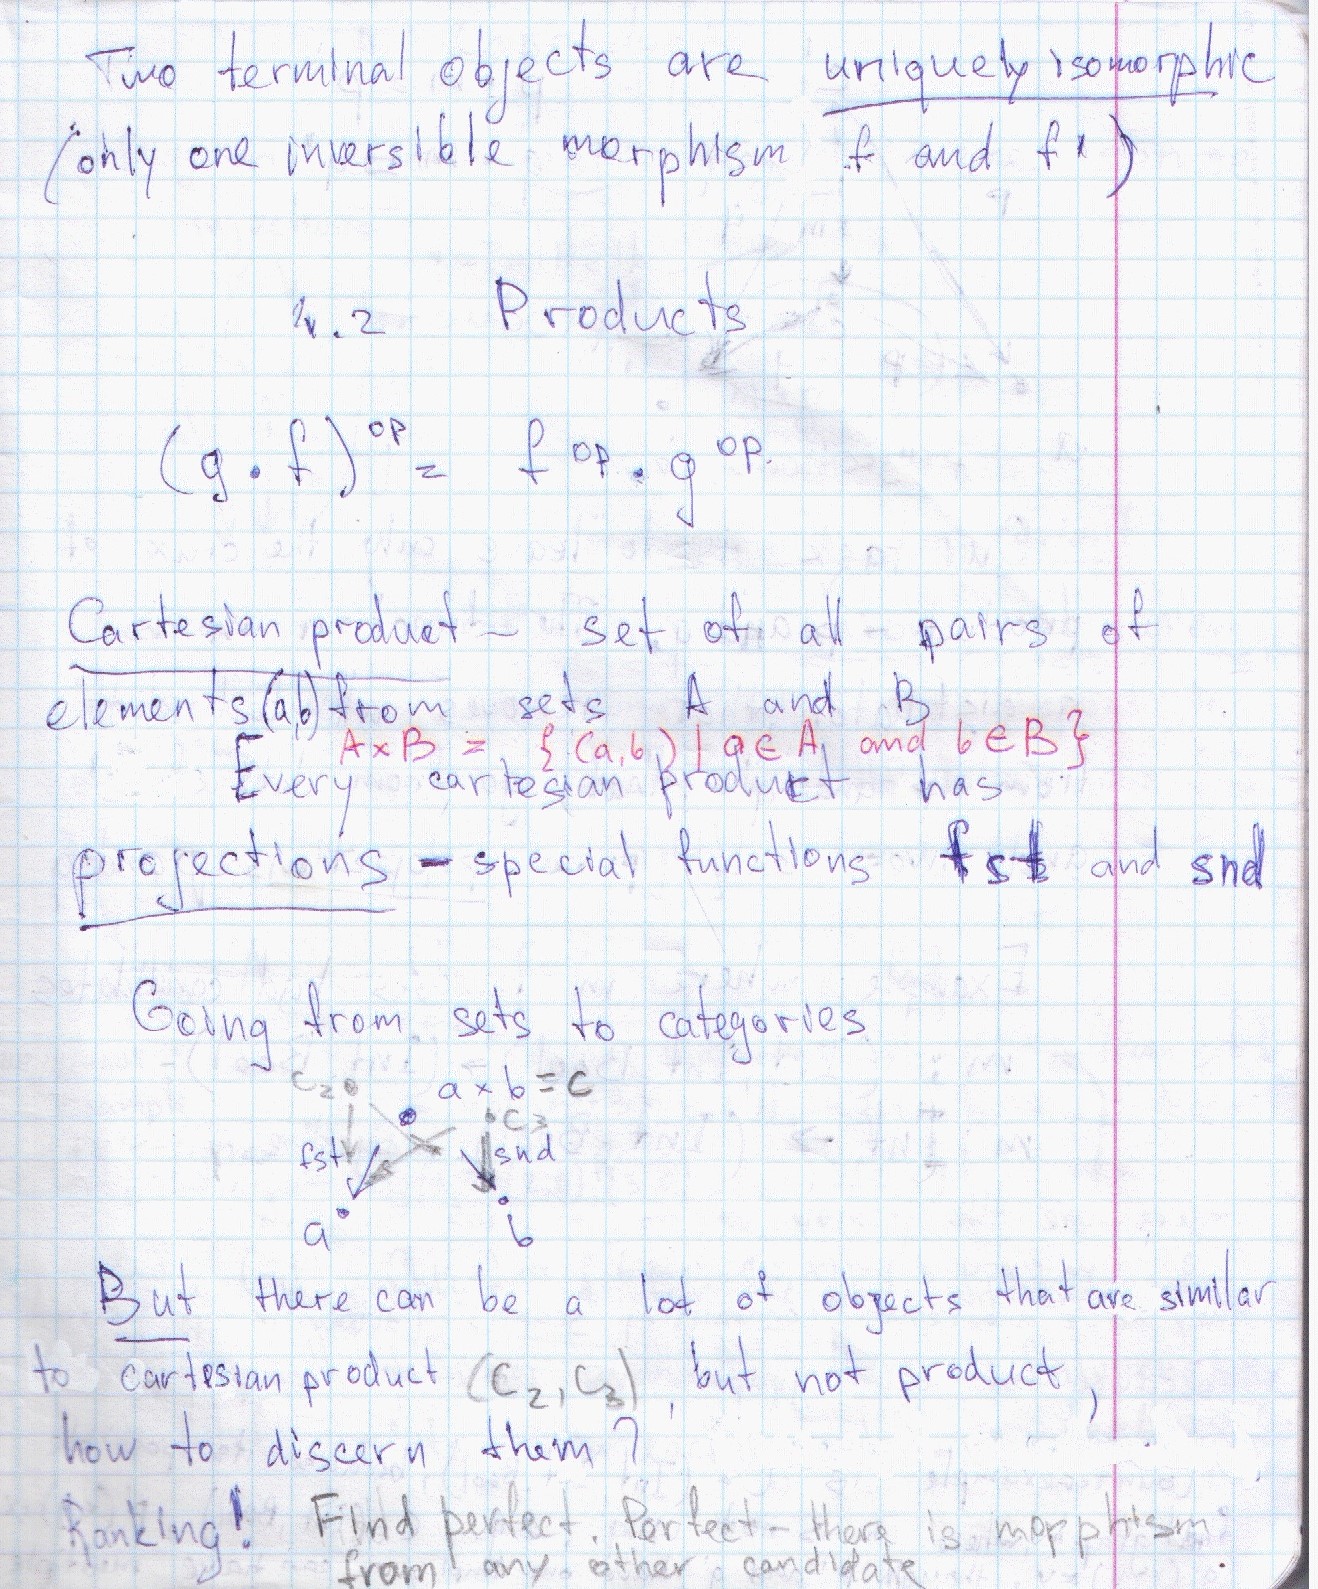 Two terminal objects are uniquely isomorphic
(only one inversible morphism f and f')
4.2 Products
(g . f)^op = f^op . g^op.
Cartesian product - set of all pairs of
elements (a,b) from sets A and B
A×B = {(a,b) | a∈A and b∈B}
Every cartesian product has
projections - special functions fst and snd
Going from sets to categories
c₂ a × b = c
c₃
fst snd
a b
But there can be a lot of objects that are similar
to cartesian product (c₂, c₃), but not product,
how to discern them?
Ranking! Find perfect. Perfect - there is morphism
from any other candidate